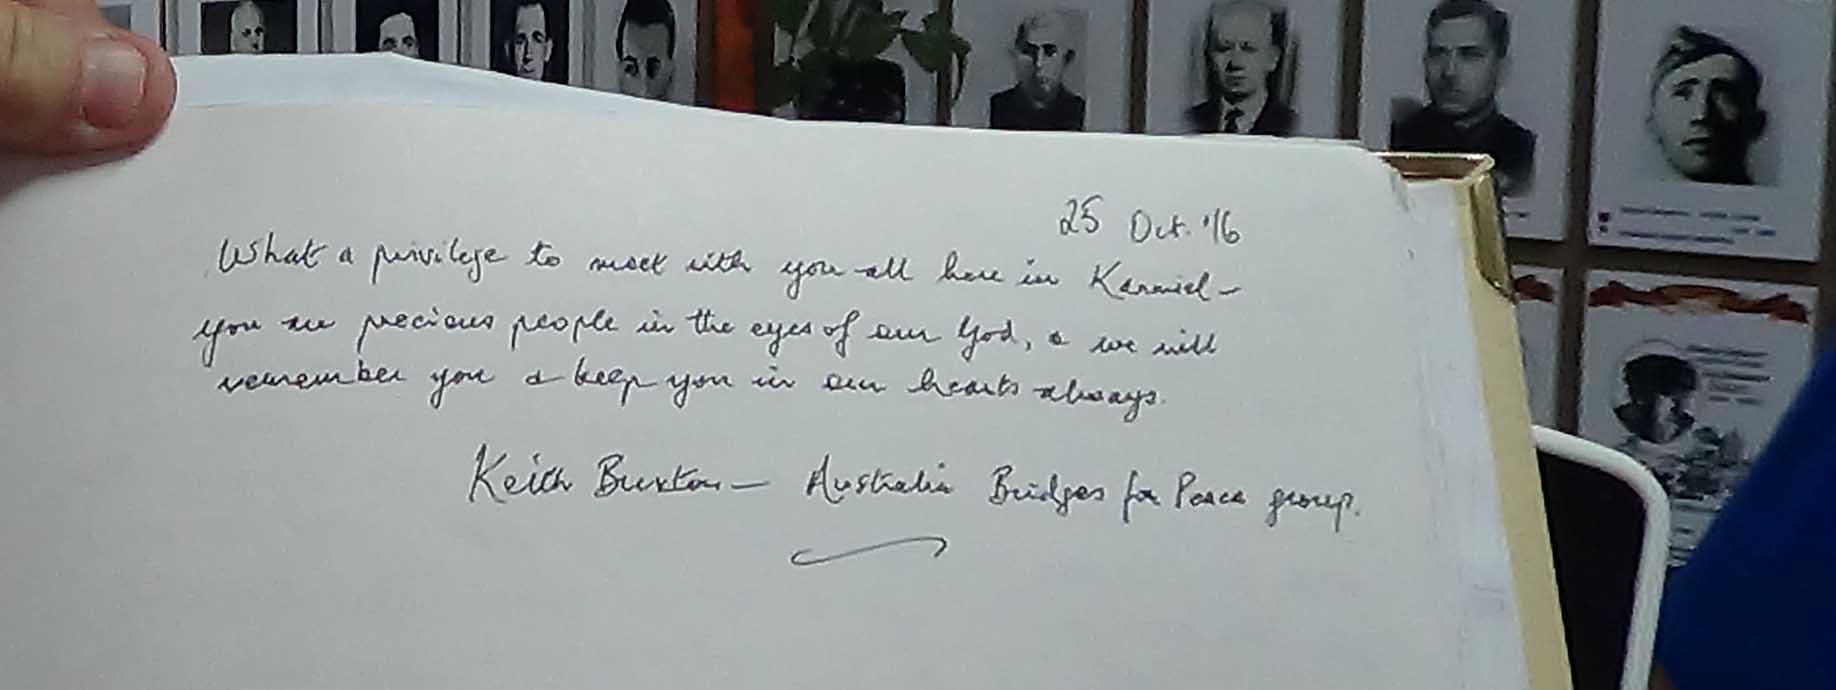 25 Oct. '16
What a privilege to meet with you all here in Karmiel -
you are precious people in the eyes of our God, & we will
remember you & keep you in our hearts always.
Keith Buxton - Australia Bridges for Peace group.